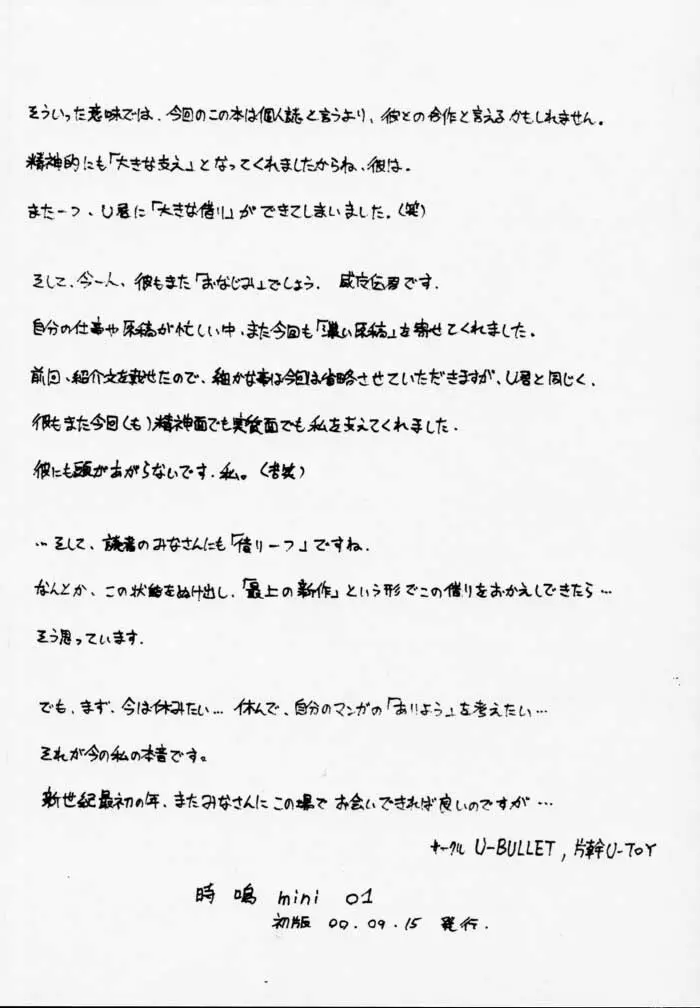 そういった意味では、今回のこの本は個人誌と言うより、彼との合作と言えるかもしれません。
精神的にも「大きな支え」となってくれましたからね、彼は。
また一つ、U君に「大きな借り」ができてしまいました。(笑)
そして、今一人、彼もまた「おなじみ」でしょう. 威夜伝君です.
自分の仕事や原稿が忙しい中、また今回も「濃い原稿」を寄せてくれました.
前回、紹介文を載せたので、細かな事は今回は省略させていただきますが、U君と同じく、
彼もまた今回(も)精神面でも実質面でも私を支えてくれました.
彼にも頭があがらないです.私。(苦笑)
…そして、読者のみなさんにも「借り一つ」ですね.
なんとか、この状態をぬけ出し、「最上の新作」という形でこの借りをおかえしできたら…
そう思っています.
でも、まず、今は休みたい… 休んで、自分のマンガの「ありよう」を考えたい…
それが今の私の本音です。
新世紀最初の年、またみなさんにこの場でお会いできれば良いのですが…
サークル U-BULLET, 片幹U-TOY
時鳴 mini 01
初版 00.09.15 発行.